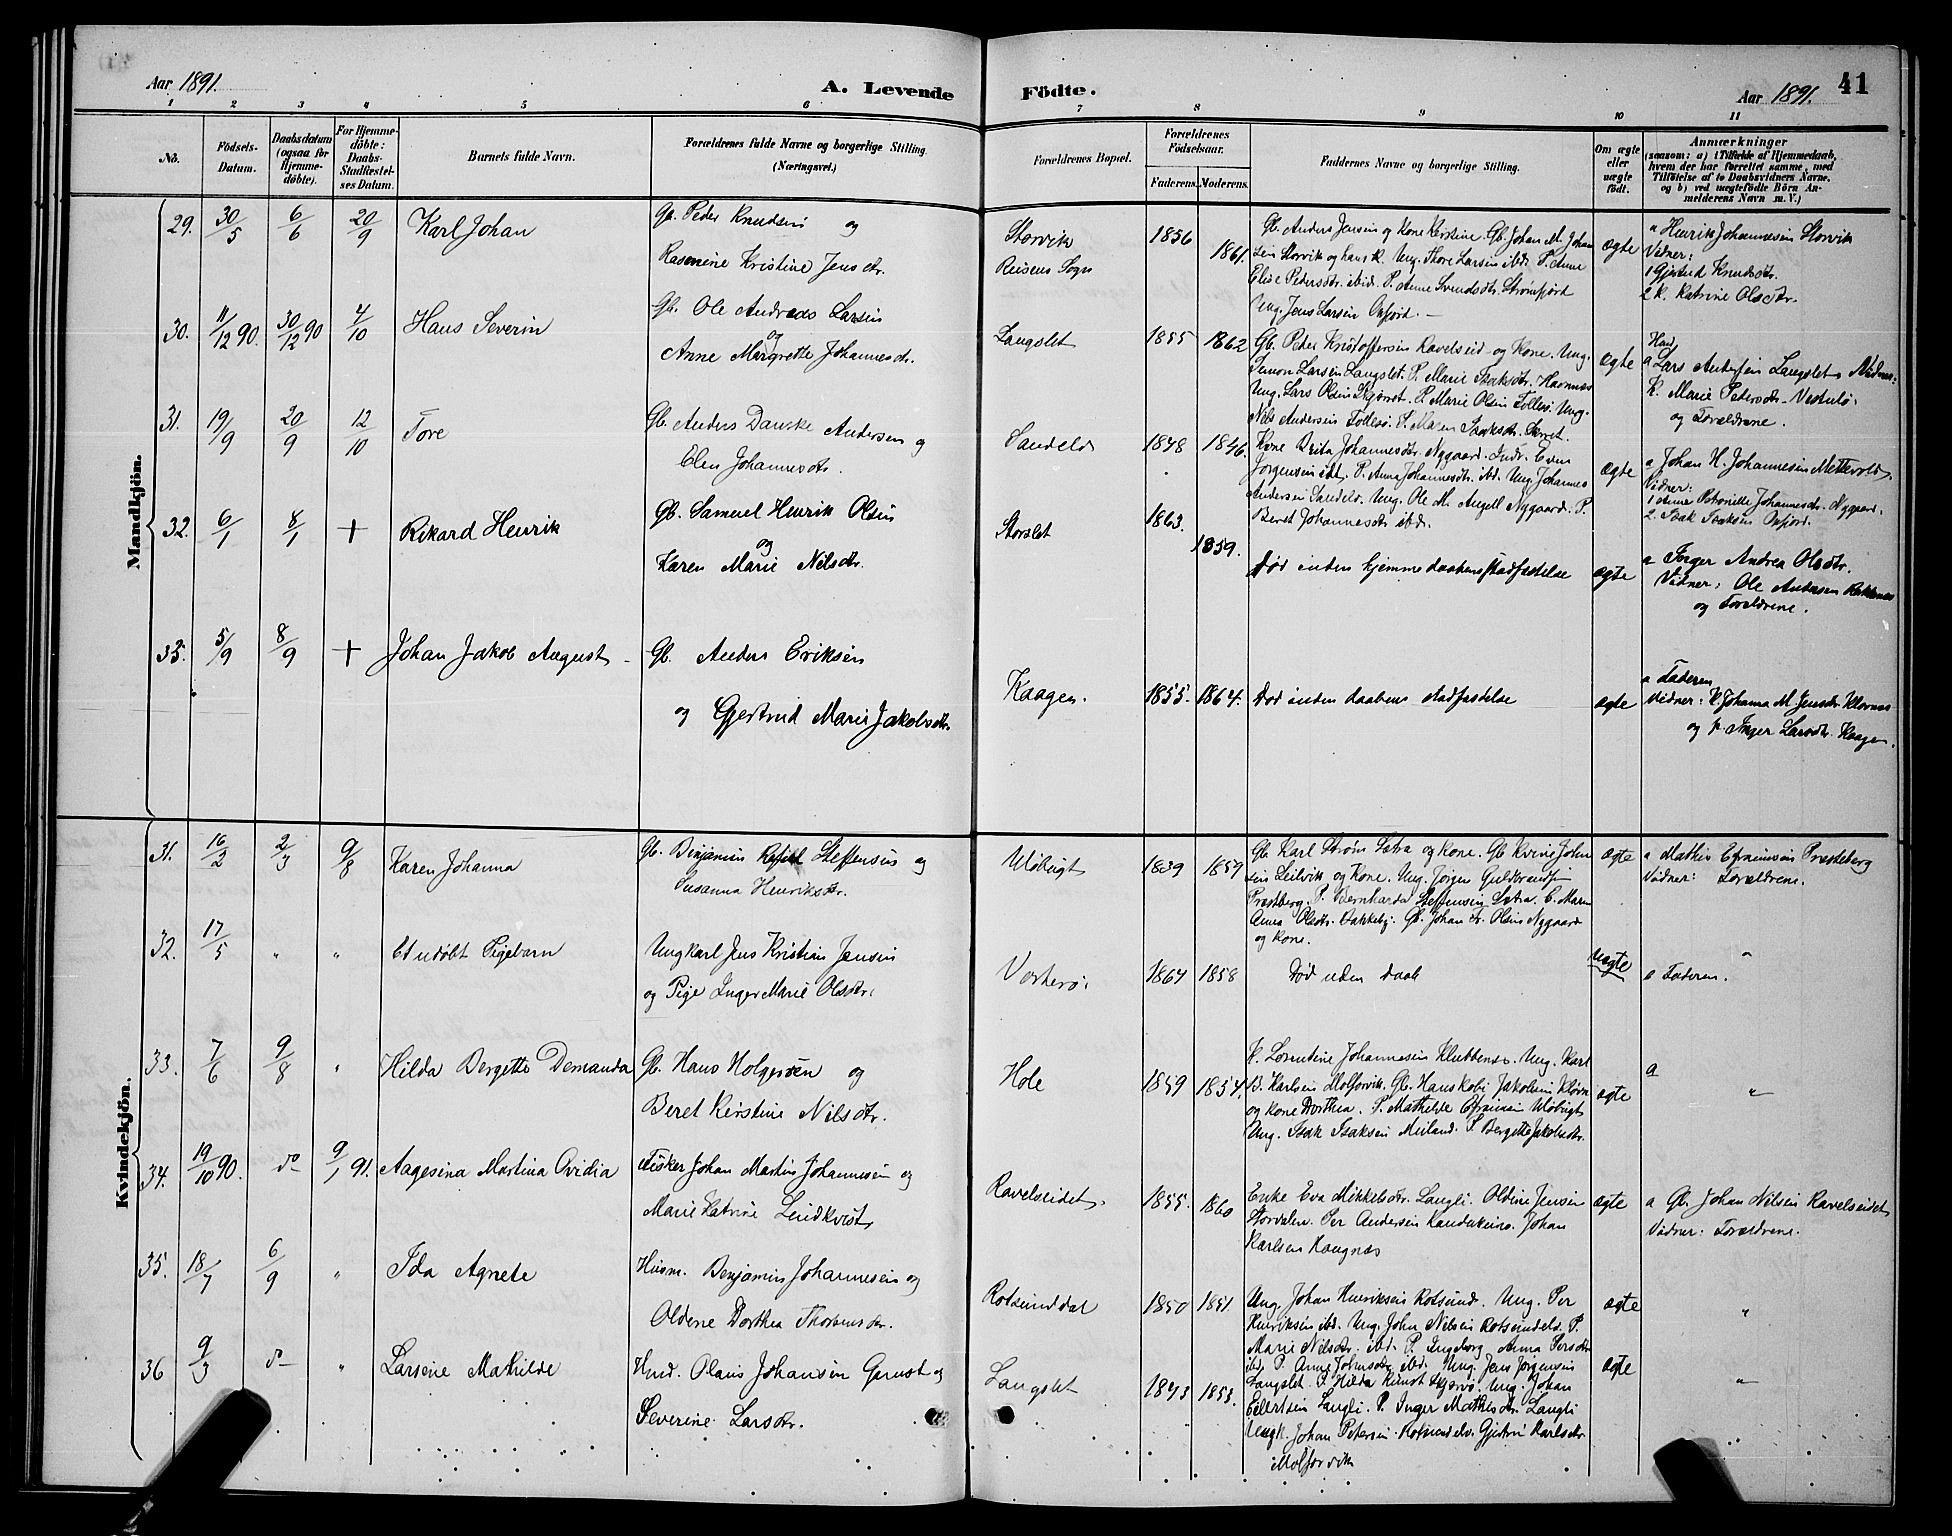 Aar 1891.
A. Levende Födte.
Aar 1891. 41
1 2 3 4 5 6 7 8 9 10 11
No.
Födsels-Datum.
Daabsdatum (ogsaa for Hjemme-døbte).
For Hjemme-døbte: Daabs-Stadfæstel-ses Datum.
Barnets fulde Navn.
Forældrenes fulde Navne og borgerlige Stilling. (Næringsvei.)
Forældrenes Bopæl.
Forældrenes Födselsaar.
Faderens. Moderens.
Faddernes Navne og borgerlige Stilling.
Om ægte eller uægte født.
Anmærkninger
(saasom: a) i Tilfælde af Hjemmedaab, hvem der har forrettet samme, med Tilføielse af to Daabsvidners Navne, og b) ved uægtefödte Börn An-melderens Navn m. V.)
Mandkjön.
29. 30/5 6/6 20/9 Karl Johan
Gb. Peder Knudsen og
Rasmine Kristine Jensdr.
Storvik
Reisens Sogn
1856 1861.
Gb. Anders Jensen og Kone Kerstine. Gb. Johan M. Johan
sen Storvik og hans K. Ung. Thore Larsen ibd. P. Anne
Elise Pedersdr. ibid. P. Anne Svendsdtr. Strømfjord
Ung. Jens Larsen Oxfjord. —
ægte
a Henrik Johannesen Storvik
Vidner:
1 Gjertrud Knudsdtr.
2 K. Katrine Olsdtr.
30. 11/12 90. 30/12 90 4/10 Hans Severin
Gb. Ole Andreas Larsen
og
Anne Margrethe Johannesdr.
Langslet 1855 1862
Gb. Peder Kristoffersen Ravelseid og Kone. Ung.
Simon Larsen Langslet. P. Marie Isaksdtr. Havnnes
Ung. Lars Olsen
P. Marie Olsen Follesö. Ung.
Nils Andersen Follesö. P. Maren Isaksdtr.
ægte
a Lars Andersen Langslet Vidner:
K. Marie Pedersdtr.
og Forældrene.
31. 19/9 20/9 12/10 Tore
Gb. Anders Danske Andersen og
Elen Johannesdtr.
Sandelv 1848 1846.
Kone Brita Johannesdtr. Nygaard. Indr. Even
Jørgensen ibd. P. Anna Johannesdtr. ibd. Ung. Johannes
Andersen Sandelv. Ung. Ole M. Angell Nygaard. P.
Beret Johannesdtr ibd.
ægte
a Johan H. Johannesen Mettevold
Vidner:
1 Anne Petronille Johannesdr. Nygaard.
2. Isak Isaksen Oxfjord.
32. 6/1 8/1 + Rikard Henrik
Gb. Samuel Henrik Olsen
og
Karen Marie Nilsdtr.
Storslet 1863. 1859.
Død inden hjemmedaabens stadfæstelse
ægte
a Inger Andrea Olsdtr.
Vidner: Ole Andersen
og Forældrene.
33. 5/9 8/9 + Johan Jakob August
Gb. Anders Eriksen
og Gjertrud Marie Jakobsdtr.
Kaagen. 1855. 1864.
Død inden daabens stadfæstelse
ægte
a Faderen
Vidner: K. Johanna M. Jensdr.
og K. Inger Larsdtr. Kaagen.
Kvindekjön.
31. 16/2 2/3 9/8 Karen Johanna
Gb. Benjamin Steffensen og
Susanna Henriksdtr.
Uløbugt 1839 1859
Gb. Karl Strøm Sætra og Kone. Gb. John
sen Leilvik og Kone. Ung. Jørgen Guldbrandsen
Præstberg. P. Bernharda Steffensen Sætra. E. Maren
Anna Olsdtr. Bakkeby. Gb. Johan Fr. Olsen Nygaard
og Kone.
ægte
a Mathis Efraimsen Præsteberg
Vidner: Forældrene.
32. 17/5 " " Et udøbt Pigebarn
Ungkarl Jens Kristian Jensen
og Pige Inger Marie Olsdtr.
1864 1858
Død uden daab
uægte
a Faderen.
33. 7/6 9/8 " Hilda Bergette Demanda
Gb. Hans Holgersen og
Beret Kerstine Nilsdtr.
Hole 1859 1854.
K. Lorentine Johannesen Klubbenes. Ung. Karl
B. Karlsen Molforvik. Gb. Hans Jakobsen
og Kone Dorthea. P. Mathilde Efraimsen Uløbugt
Ung. Isak Isaksen Meiland. P. Bergette Jakobsdtr.
ægte
a "
34. 19/10 90. do 9/1 91. Aagesina Martina Ovidia
Fisker Johan Martin Johannesen og
Marie Katrine Lindkvist
Ravelseidet. 1855. 1860
Enke Eva Mikkelsdtr. Langli. Oldine Jensen
Stordalen. Per Andersen Kautokeino. Johan
Karlsen Kaagnæs
ægte
a Gb. Johan Nilsen Ravelseidet
Vidner: Forældrene.
35. 18/7 6/9 " Ida Agnete
Husm. Benjamin Johannesen og
Oldene Dorthea Thorbensdr.
Rotsunddal 1850 1851.
Ung. Johan Henriksen Rotsund. Ung. Per
Henriksen ibd. Ung. John Nilsen Rotsundelv. P.
Marie Nilsdtr. ibd. P. Ingeborg Anna Persdtr
ibd. P. Anne Johnsdtr ibd.
ægte "
36 9/3 do " Larsine Mathilde
Hmd. Olaus Johansen Garnst og
Severine Larsdtr.
Langslet 1843 1853.
Ung. Jens Jørgensen
Langslet. P. Hilda Kunst Skjervø. Ung. Johan
Eilertsen Langli. P. Inger Mathisdtr. Langli
Ungk. Johan Petersen Rotsundelv. Gjertrud Karlsdtr
Molforvik
ægte "